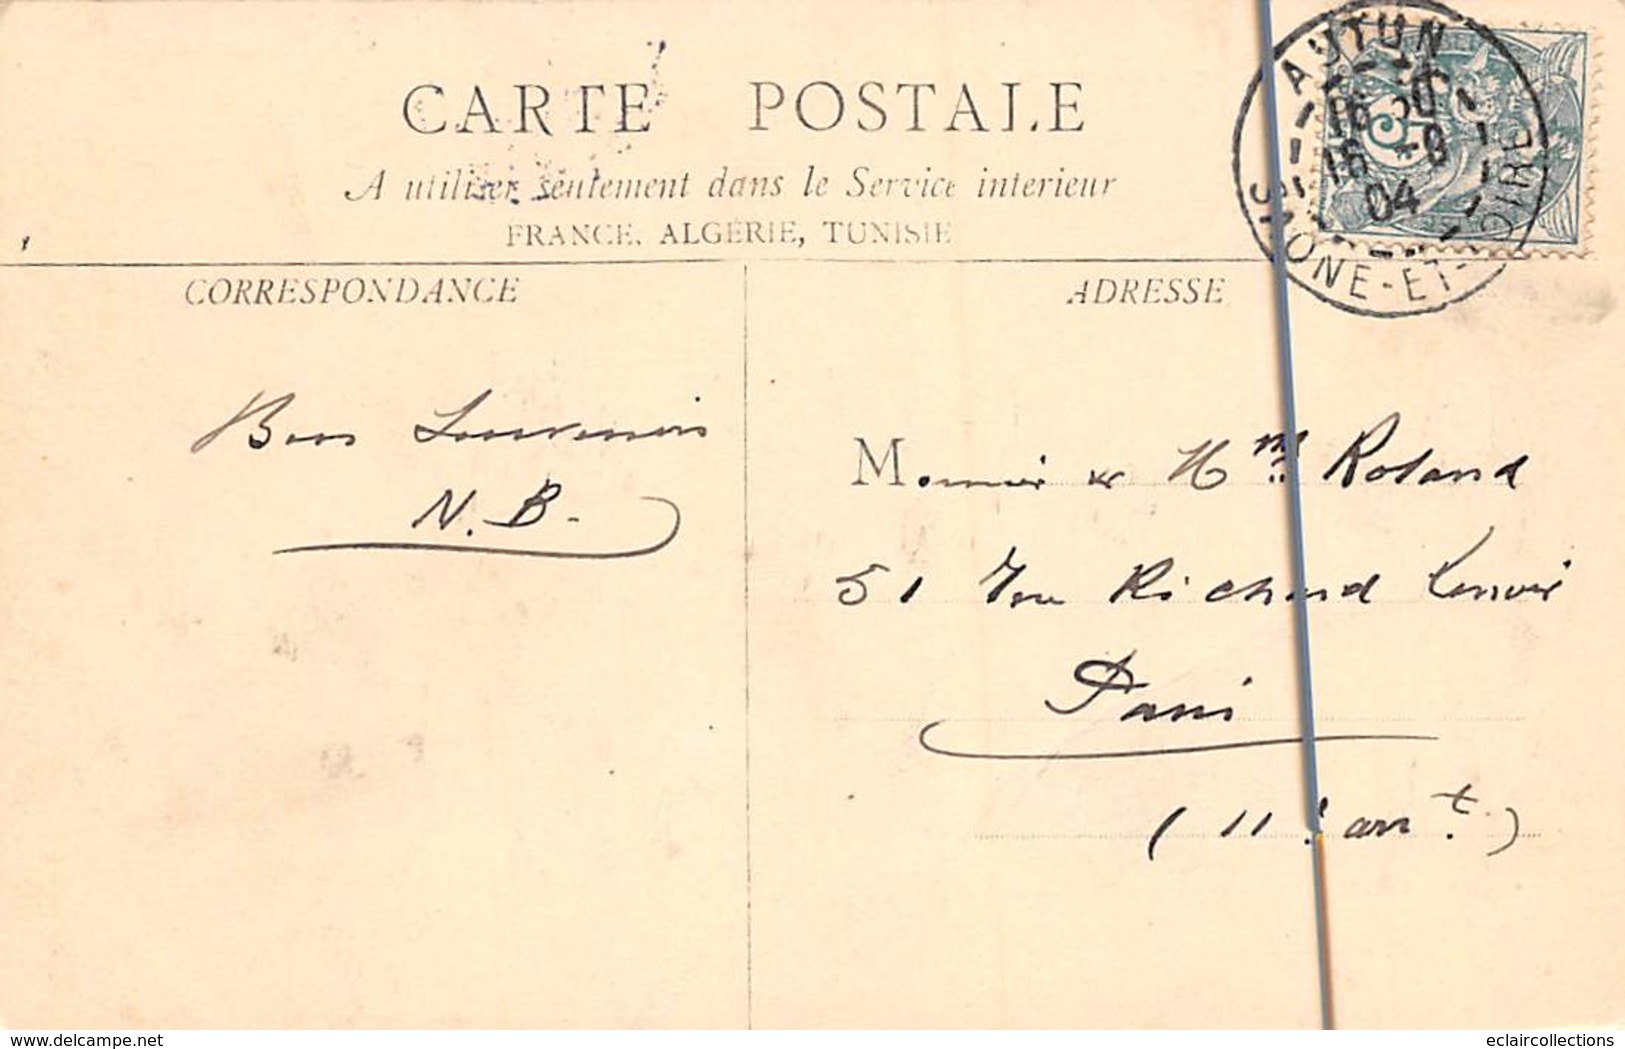 CARTE POSTALE
A utiliser seulement dans le Service interieur
FRANCE, ALGÉRIE, TUNISIE
AUTUN
16 30
16 -8
04
SAONE-ET-LOIRE
5
CORRESPONDANCE
ADRESSE
Bons Souvenirs
N. B.
Monsieur & Mme Roland
51 rue Richard Lenoir
Paris
(11e arrt.)
delcampe.net
eclaircollections